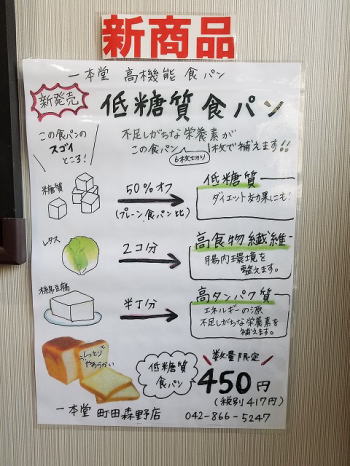 新商品
一本堂 高機能 食パン
新発売
低糖質食パン
この食パンの
スゴイ
ところ!
不足しがちな栄養素が
この食パン1枚で補えます!!
6枚切り
糖質
50%オフ
(プレーン食パン比)
低糖質
ダイエット効果にも!
レタス
2コ分
高食物繊維
腸内環境を
整えます。
木綿豆腐
半丁分
高タンパク質
エネルギーの源
不足しがちな栄養素を
補えます。
しっとり
やわらかい
低糖質
食パン
数量限定
450円
(税別417円)
一本堂 町田森野店
042-866-5247